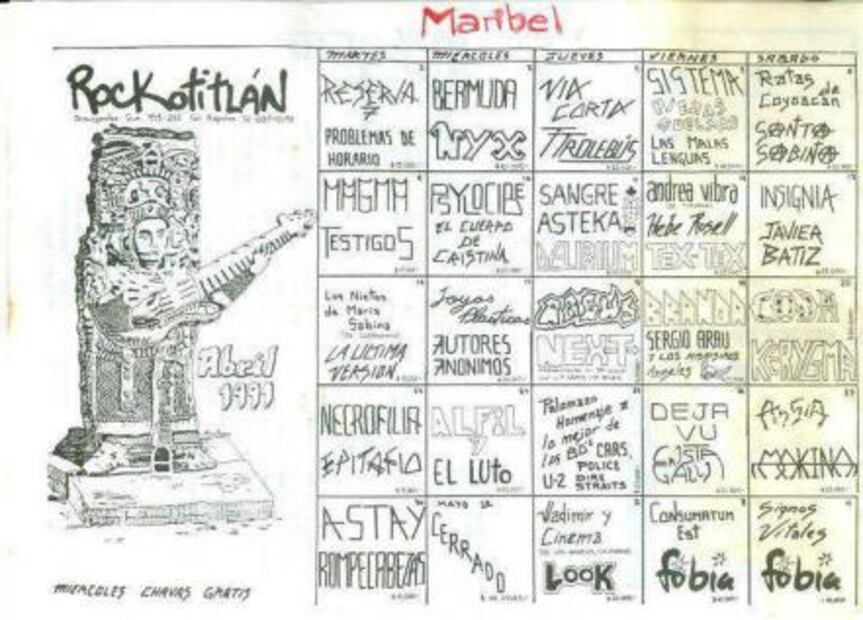 Maribel
ROCKOTITLÁN
Abril
1991
MIERCOLES CHAVAS GRATIS
MARTES
MIERCOLES
JUEVES
VIERNES
SABADO
RESERVA
7
PROBLEMAS DE
HORARIO
BERMUDA
NYX
VIA
CORTA
TROLEBUS
SISTEMA
LAS MALAS
LENGUAS
Ratas
de
Coyoacán
SANTA
SABINA
MAGMA
TESTIGOS
PSYLOCIBE
EL CUERPO
DE
CRISTINA
SANGRE
ASTEKA
DELIRIUM
andrea vibra
Hebe Rosell
TEX-TEX
INSIGNIA
JAVIER
BATIZ
Los Nietos
de Maria
Sabina
LA ULTIMA
VERSION
Joyas
Plasticas
AUTORES
ANONIMOS
NEXT
BRANDA
SERGIO ARAU
Y LOS
Angeles
CODA
KERYGMA
NECROFILIA
EPITAFIO
ALFIL
Y
EL LUto
Palomazo
Homenaje a
lo mejor de
los 80's CARS,
POLICE
U-2 DIRE
STRAITS
DEJA
VU
ASSIA
MAKINA
ASTAY
ROMPECABEZAS
MAYO
CERRADO
Vladimir y
Cinema
LOOK
CONSUMATUM
EST
fobia
Signos
Vitales
fobia